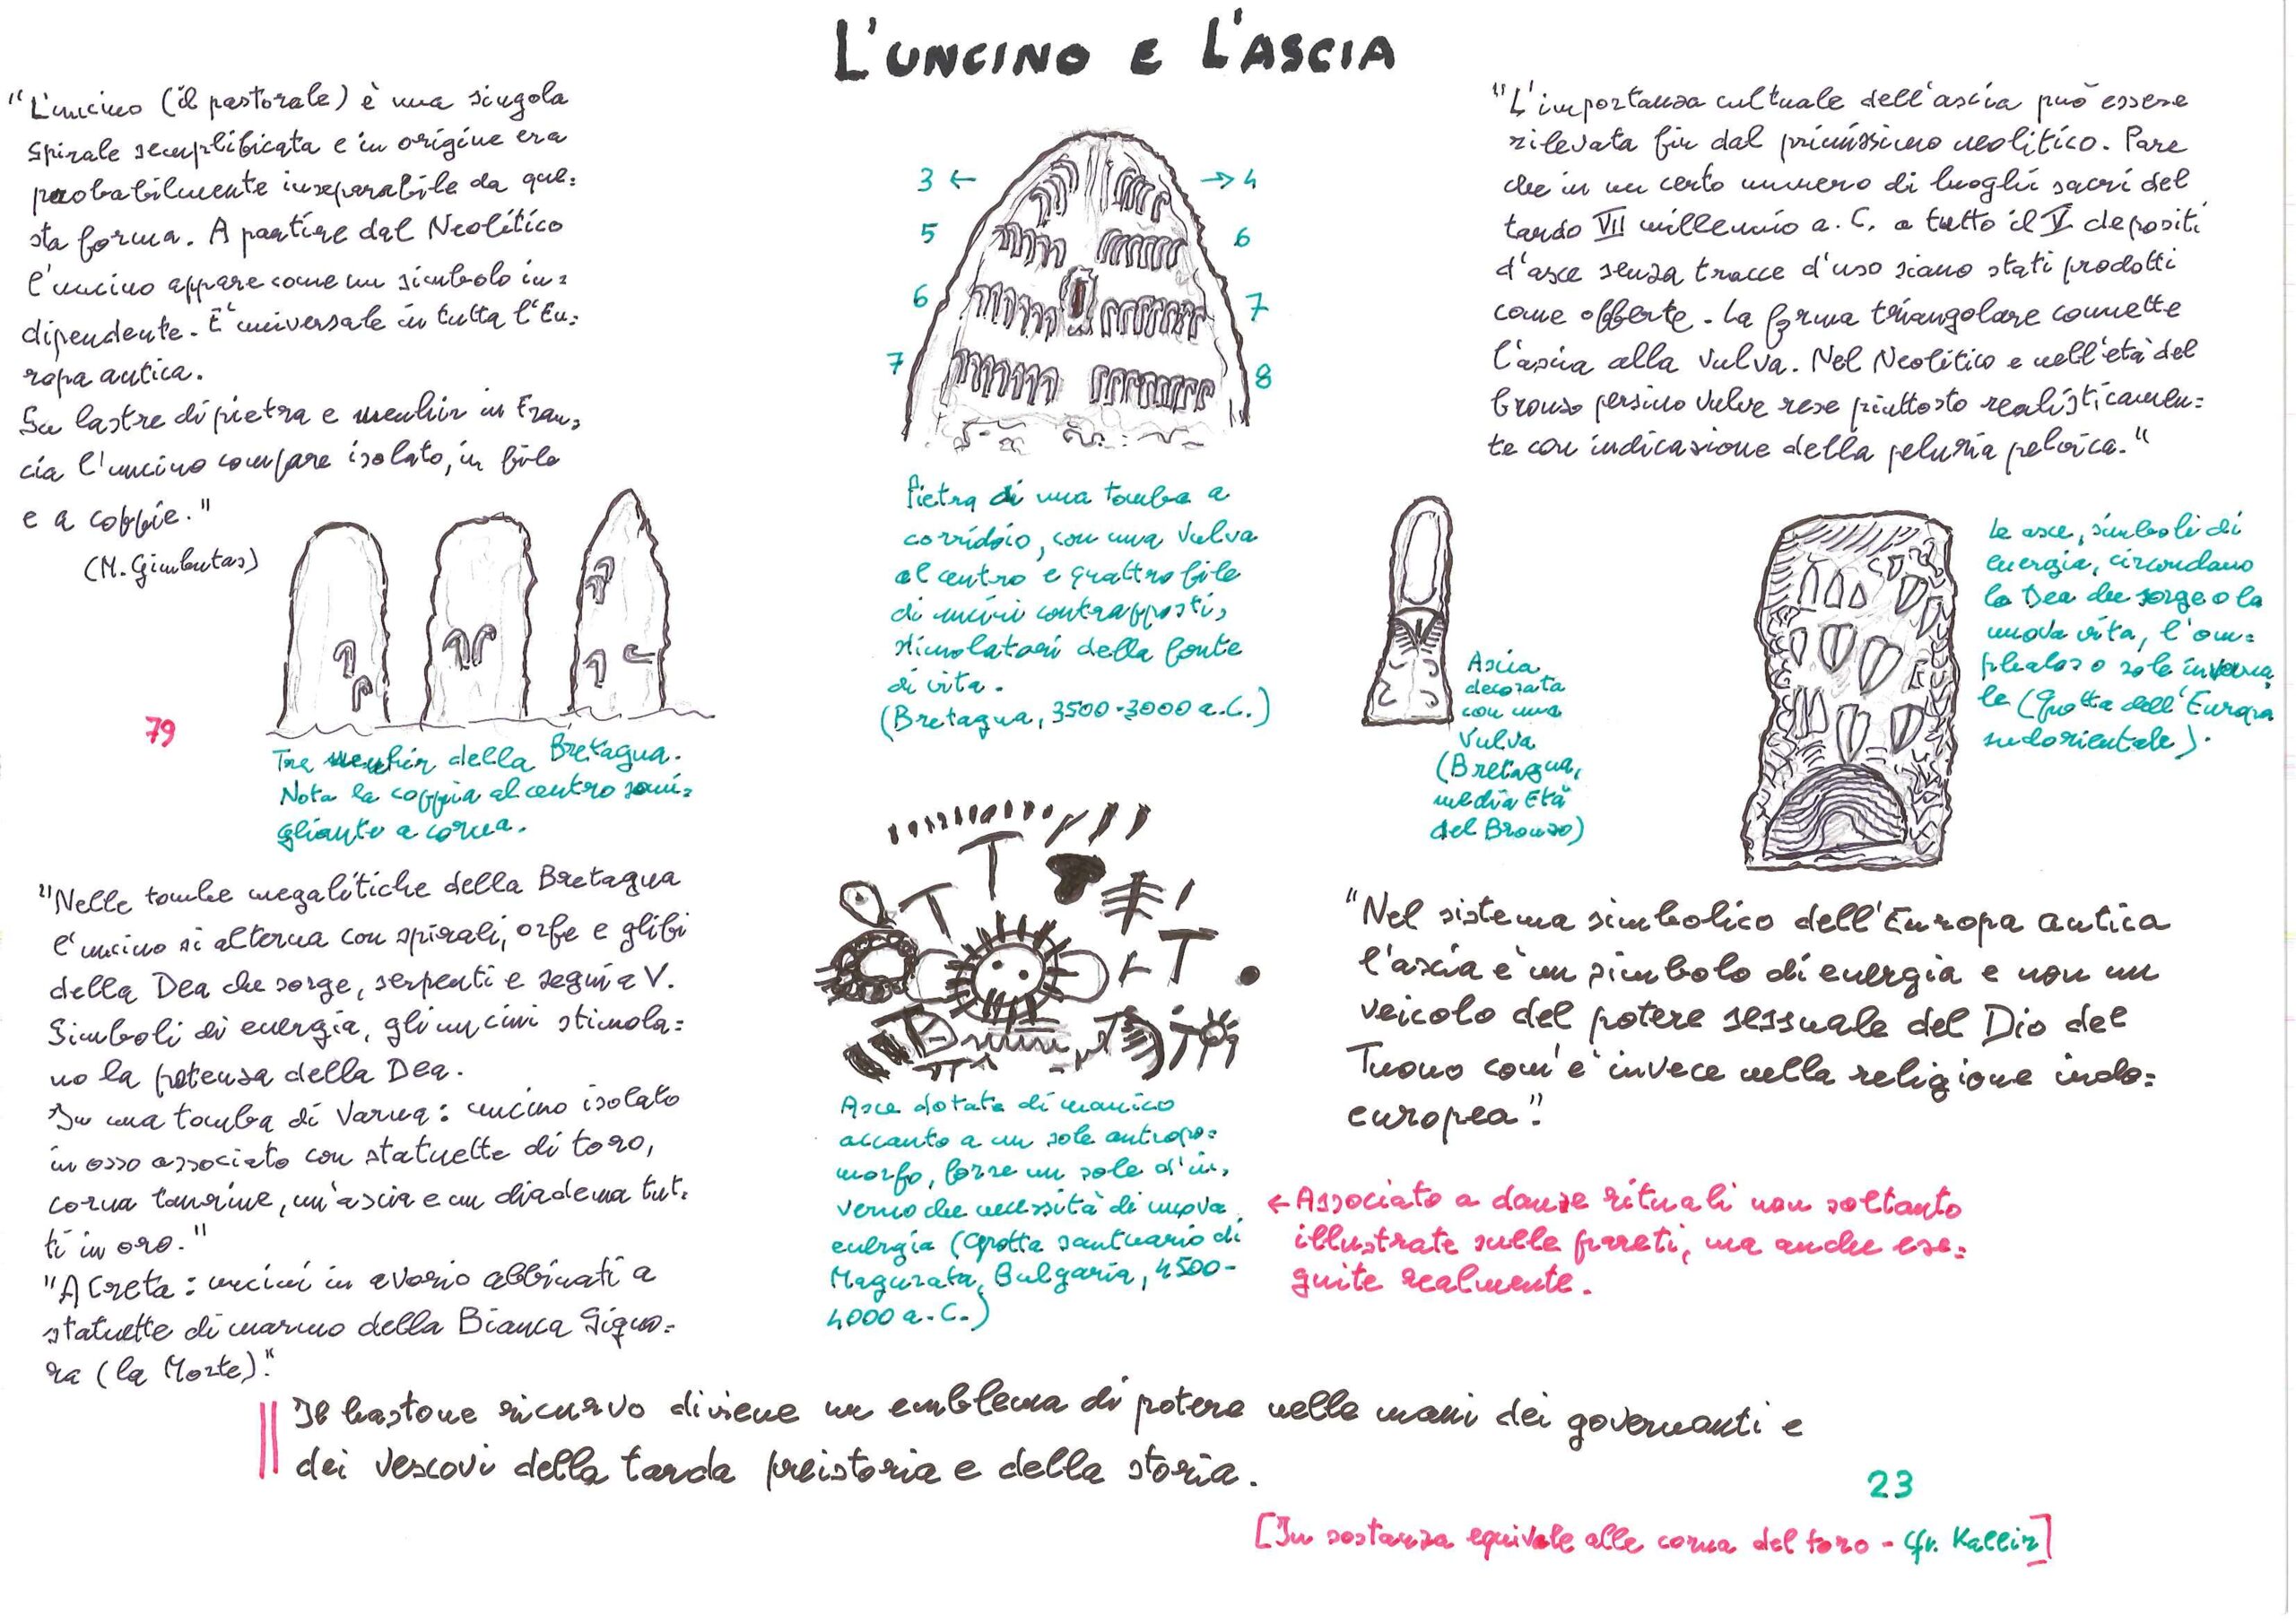 L'UNCINO E L'ASCIA
"L'uncino (il pastorale) è una singola
spirale semplificata e in origine era
probabilmente inseparabile da que=
sta forma. A partire dal Neolitico
l'uncino appare come un simbolo in=
dipendente. È universale in tutta l'Eu=
ropa antica.
Su lastre di pietra e menhir in Fran=
cia l'uncino compare isolato, in file
e a coppie."
(M. Gimbutas)
79
Tre menhir della Bretagna.
Nota la coppia al centro somi=
gliante a corna.
"Nelle tombe megalitiche della Bretagna
l'uncino si alterna con spirali, orfe e glifi
della Dea che sorge, serpenti e segni a V.
Simboli di energia, gli uncini stimola=
no la potenza della Dea.
In una tomba di Varna: uncino isolato
in osso associato con statuette di toro,
corna taurine, un'ascia e un diadema tut=
ti in oro."
"A Creta: uncini in avorio abbinati a
statuette di marmo della Bianca Signo=
ra (la Morte)."
3 ← → 4
5 6
6 7
7 8
Pietra di una tomba a
corridoio, con una vulva
al centro e quattro file
di uncini contrapposti,
stimolatori della fonte
di vita.
(Bretagna, 3500-3000 a.C.)
Asce dotate di manico
accanto a un sole antropo=
morfo, forse un sole d'in=
verno che necessità di nuova
energia (Grotta santuario di
Magurata, Bulgaria, 4500-
4000 a.C.)
"L'importanza cultuale dell'ascia può essere
rilevata fin dal primissimo neolitico. Pare
che in un certo numero di luoghi sacri del
tardo VII millennio a.C. a tutto il V depositi
d'asce senza tracce d'uso siano stati prodotti
come offerte. La forma triangolare connette
l'ascia alla vulva. Nel Neolitico e nell'età del
bronzo persino vulve rese piuttosto realisticamen=
te con indicazione della peluria pelvica."
Ascia
decorata
con una
vulva
(Bretagna,
media Età
del Bronzo)
Le asce, simboli di
energia, circondano
la Dea che sorge o la
nuova vita, l'om=
phalos o sole inverna=
le (Grotta dell'Europa
sudorientale).
"Nel sistema simbolico dell'Europa antica
l'ascia è un simbolo di energia e non un
veicolo del potere sessuale del Dio del
Tuono com'è invece nella religione indo=
europea".
← Associato a danze rituali non soltanto
illustrate sulle pareti, ma anche ese=
guite realmente.
Il bastone ricurvo diviene un emblema di potere nelle mani dei governanti e
dei vescovi della tarda preistoria e della storia.
23
[In sostanza equivale alle corna del toro - Cfr. Kallir]